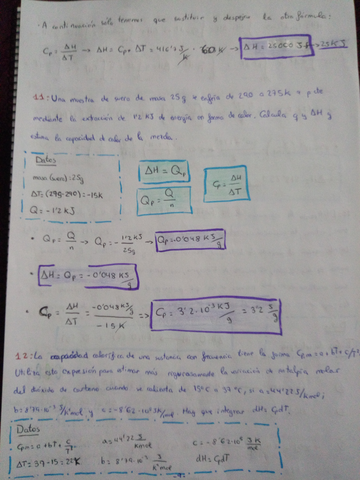 · A continuación sólo tenemos que sustituir y despejar la otra fórmula:
Cp = ΔH/ΔT → ΔH = Cp · ΔT = 416'2 J/K · 60 K → ΔH = 25000 J = 25 KJ
11: Una muestra de suero de masa 25g se enfría de 290 a 275K a p cte
mediante la extracción de 1'2 KJ de energía en forma de calor. Calcula q y ΔH y
estima la capacidad de calor de la muestra.
Datos
masa (suero): 25g
ΔT = (275-290) = -15K
Q = -1'2 KJ
ΔH = Qp
Qp = Q/n
Cp = ΔH/ΔT
• Qp = Q/n → Qp = -1'2 KJ/25g → Qp = -0'048 KJ/g
• ΔH = Qp = -0'048 KJ/g
• Cp = ΔH/ΔT = -0'048 KJ/g / -15K => Cp = 3'2·10⁻³ KJ/g = 3'2 J/g
12: La capacidad calorífica de una sustancia con frecuencia tiene la forma Cp,m = a + bT + c/T².
Utiliza esta expresión para estimar más rigurosamente la variación de entalpía molar
del dióxido de carbono cuando se calienta de 15°C a 37°C, si a = 44'22 J/Kmol;
y c = -8'62·10⁵ JK/mol. Hay que integrar dH = CpdT.
Datos
ΔT = 37-15 = 22K
a = 44'22 J/Kmol
c = -8'62·10⁵ JK/mol
dH = CpdT